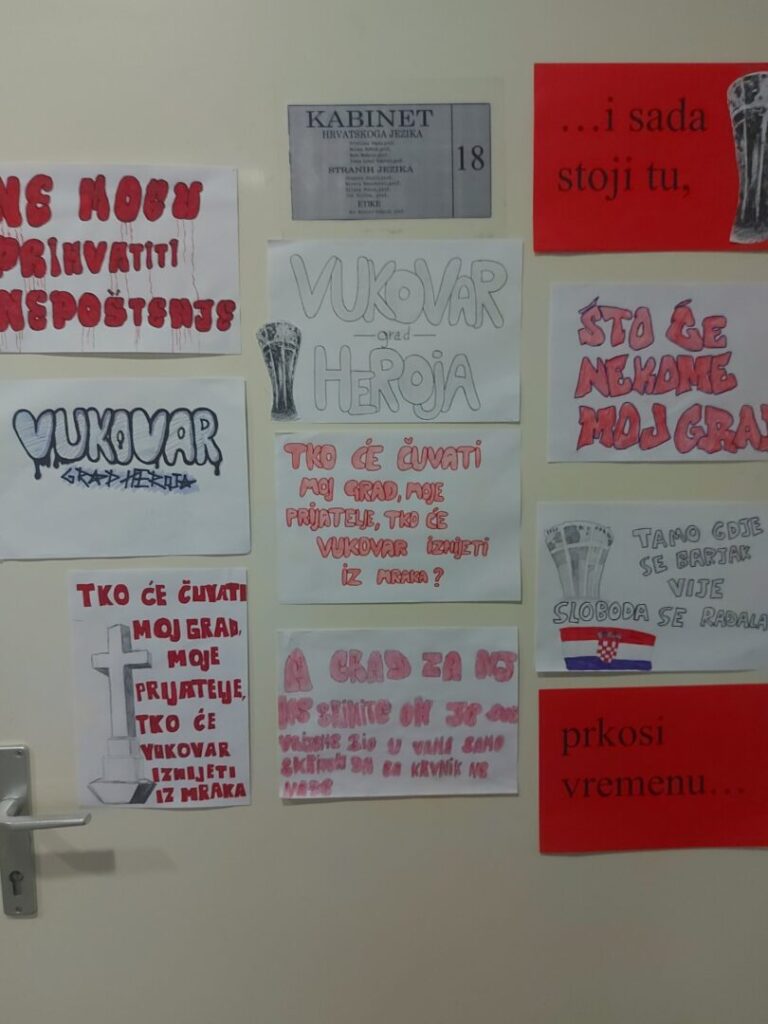 KABINET
HRVATSKOGA JEZIKA
STRANIH JEZIKA
ETIKE
18
...i sada
stoji tu,
NE MOGU
PRIHVATITI
NEPOŠTENJE
VUKOVAR
grad
HEROJA
ŠTO ĆE
NEKOME
MOJ GRAD
VUKOVAR
GRAD HEROJA
TKO ĆE ČUVATI
MOJ GRAD, MOJE
PRIJATELJE, TKO ĆE
VUKOVAR IZNIJETI
IZ MRAKA?
TAMO GDJE
SE BARJAK
VIJE
SLOBODA SE RAĐALA
TKO ĆE ČUVATI
MOJ GRAD,
MOJE
PRIJATELJE,
TKO ĆE
VUKOVAR
IZNIJETI
IZ MRAKA
A GRAD ZA
ON JE
U VAMA SAMO
KRVNIK NE
prkosi
vremenu...